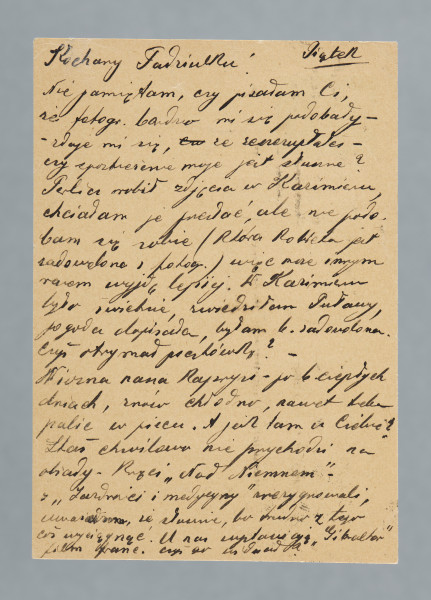 Kochany Tadziulku! Piątek
Nie pamiętam, czy pisałam Ci,
że fotogr. bardzo mi się podobały-
- zdaje mi się, że
czy spostrzeżenie moje jest słuszne?
robił zdjęcia w Kazimierzu,
chciałam je posłać, ale nie podo-
bam się sobie (która kobieta jest
zadowolona z fotogr.) więc może innym
razem wyjdę lepiej. W Kazimierzu
było świetnie, zwiedziłam Puławy,
pogoda dopisała, byłam b. zadowolona.
Czyś otrzymał pocztówkę? -
Wiosna nasza - po b. ciepłych
dniach, znów chłodno, nawet trzeba
palić w piecu. A jak tam u Ciebie?
Staś chwilowo nie przychodzi na
obiady. "Nad Niemnem" -
z "Zazdrości i medycyny" zrezygnowali,
uważam, że słusznie, bo trudno z tego
coś wyciągnąć. U nas wyświetlają "Gibraltar"
film franc. czyś go widział?